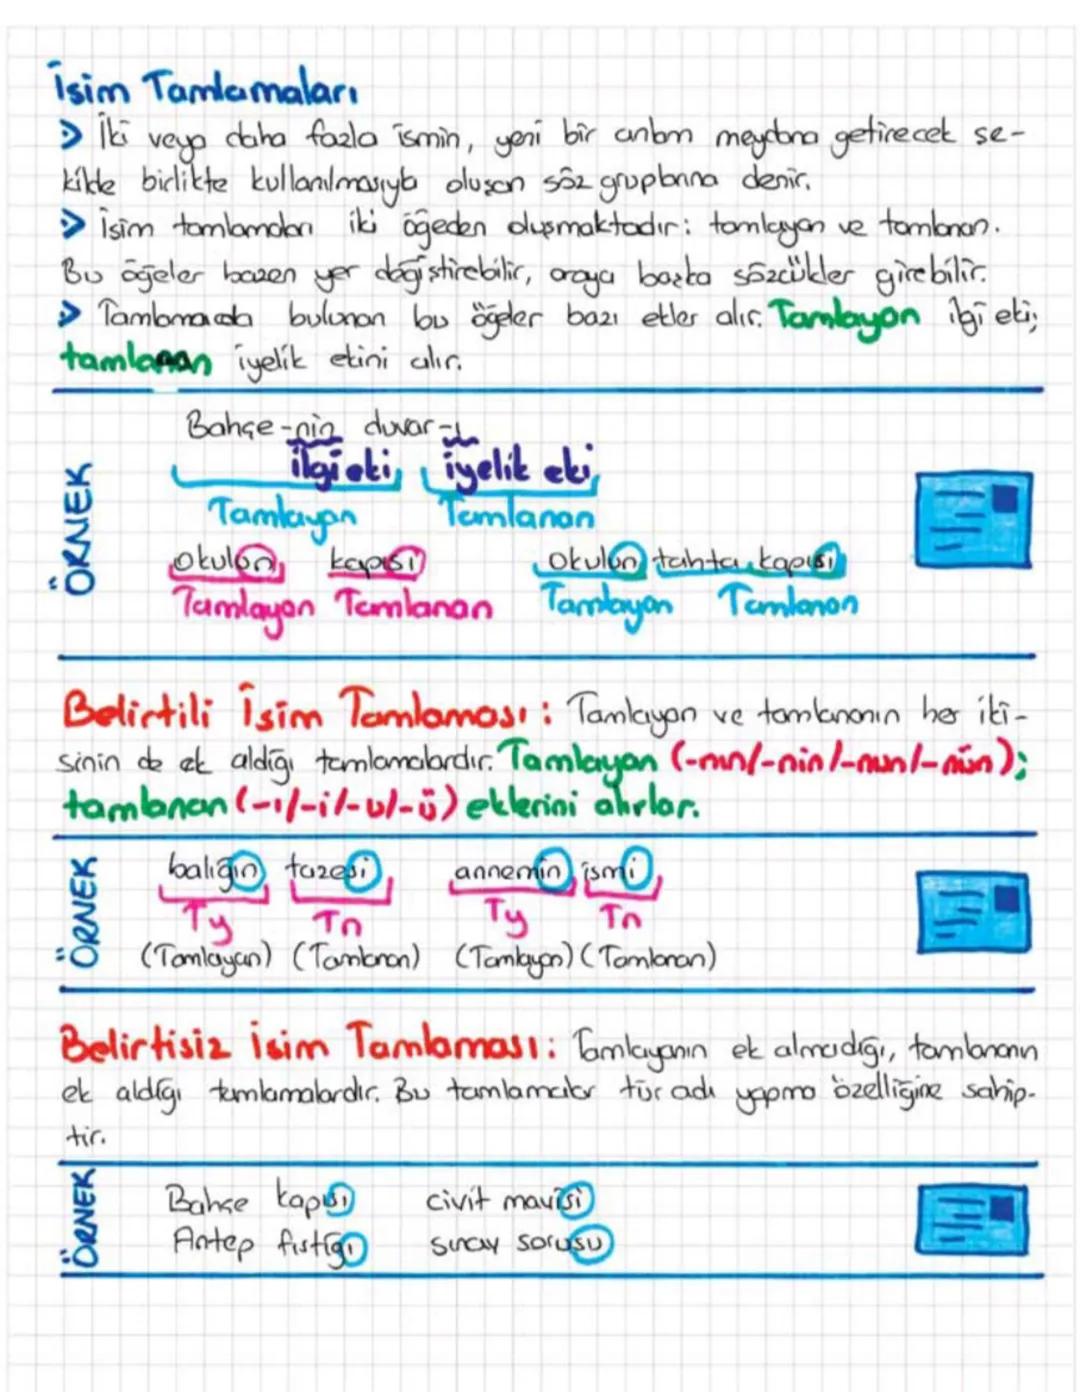 İsim Tamlamaları
> İki veya daha fazla ismin, yeni bir anlam meydana getirecek şe-
kilde birlikte kullanılmasıyla oluşan söz gruplarına denir.
> İsim tamlamaları iki öğeden oluşmaktadır: tamlayan ve tamlanan.
Bu öğeler bazen yer değiştirebilir, araya başka sözcükler girebilir.
> Tamlamada bulunan bu öğeler bazı ekler alır. Tamlayan ilgi eki;
tamlanan iyelik ekini alır.
ÖRNEK
Bahçe-nin duvar-ı
ilgi eki iyelik eki
Tamlayan Tamlanan
okulun kapısı okulun tahta kapısı
Tamlayan Tamlanan Tamlayan Tamlanan
Belirtili İsim Tamlaması: Tamlayan ve tamlananın her iki-
sinin de ek aldığı tamlamalardır. Tamlayan (-nın/-nin/-nun/-nün);
tamlanan (-ı/-i/-u/-ü) eklerini alırlar.
ÖRNEK
balığın tazesi annemin ismi
Ty Tn Ty Tn
(Tamlayan) (Tamlanan) (Tamlayan) (Tamlanan)
Belirtisiz İsim Tamlaması: Tamlayanın ek almadığı, tamlananın
ek aldığı tamlamalardır. Bu tamlamalar tür adı yapma özelliğine sahip-
tir.
ÖRNEK
Bahçe kapısı civit mavisi
Antep fıstığı sınav sorusu